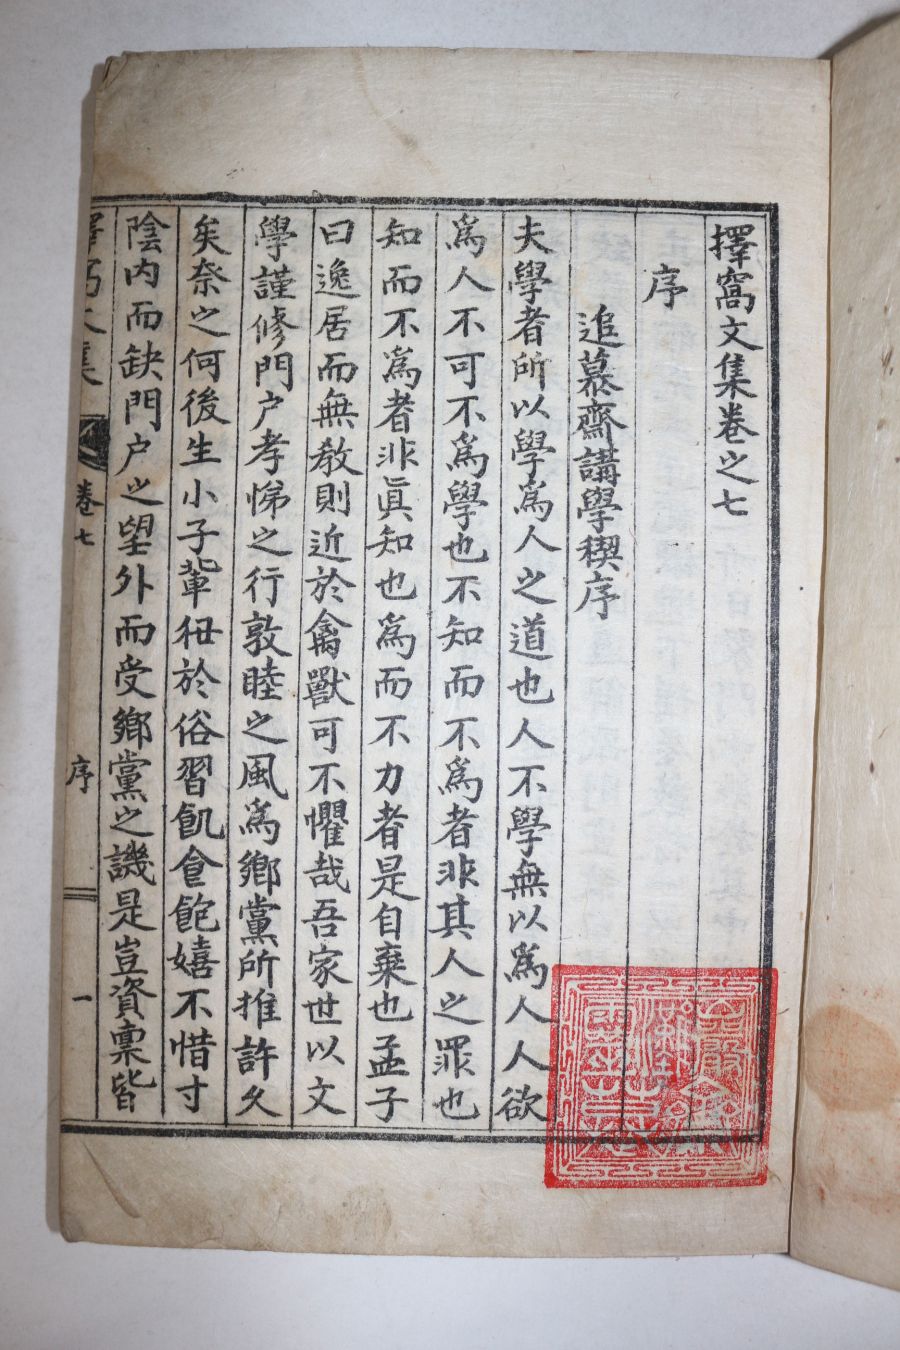 擇窩文集卷之七
序
追慕齋講學稧序
夫學者所以學爲人之道也人不學無以爲人人欲
爲人不可不爲學也不知而不爲者非其人之罪也
知而不爲者非眞知也爲而不力者是自棄也孟子
曰逸居而無敎則近於禽獸可不懼哉吾家世以文
學謹修門户孝悌之行敦睦之風爲鄉黨所推許久
矣奈之何後生小子輩狃於俗習飢食飽嬉不惜寸
陰内而缺門户之望外而受鄉黨之譏是豈資稟皆
擇窩文集
卷七
序
一